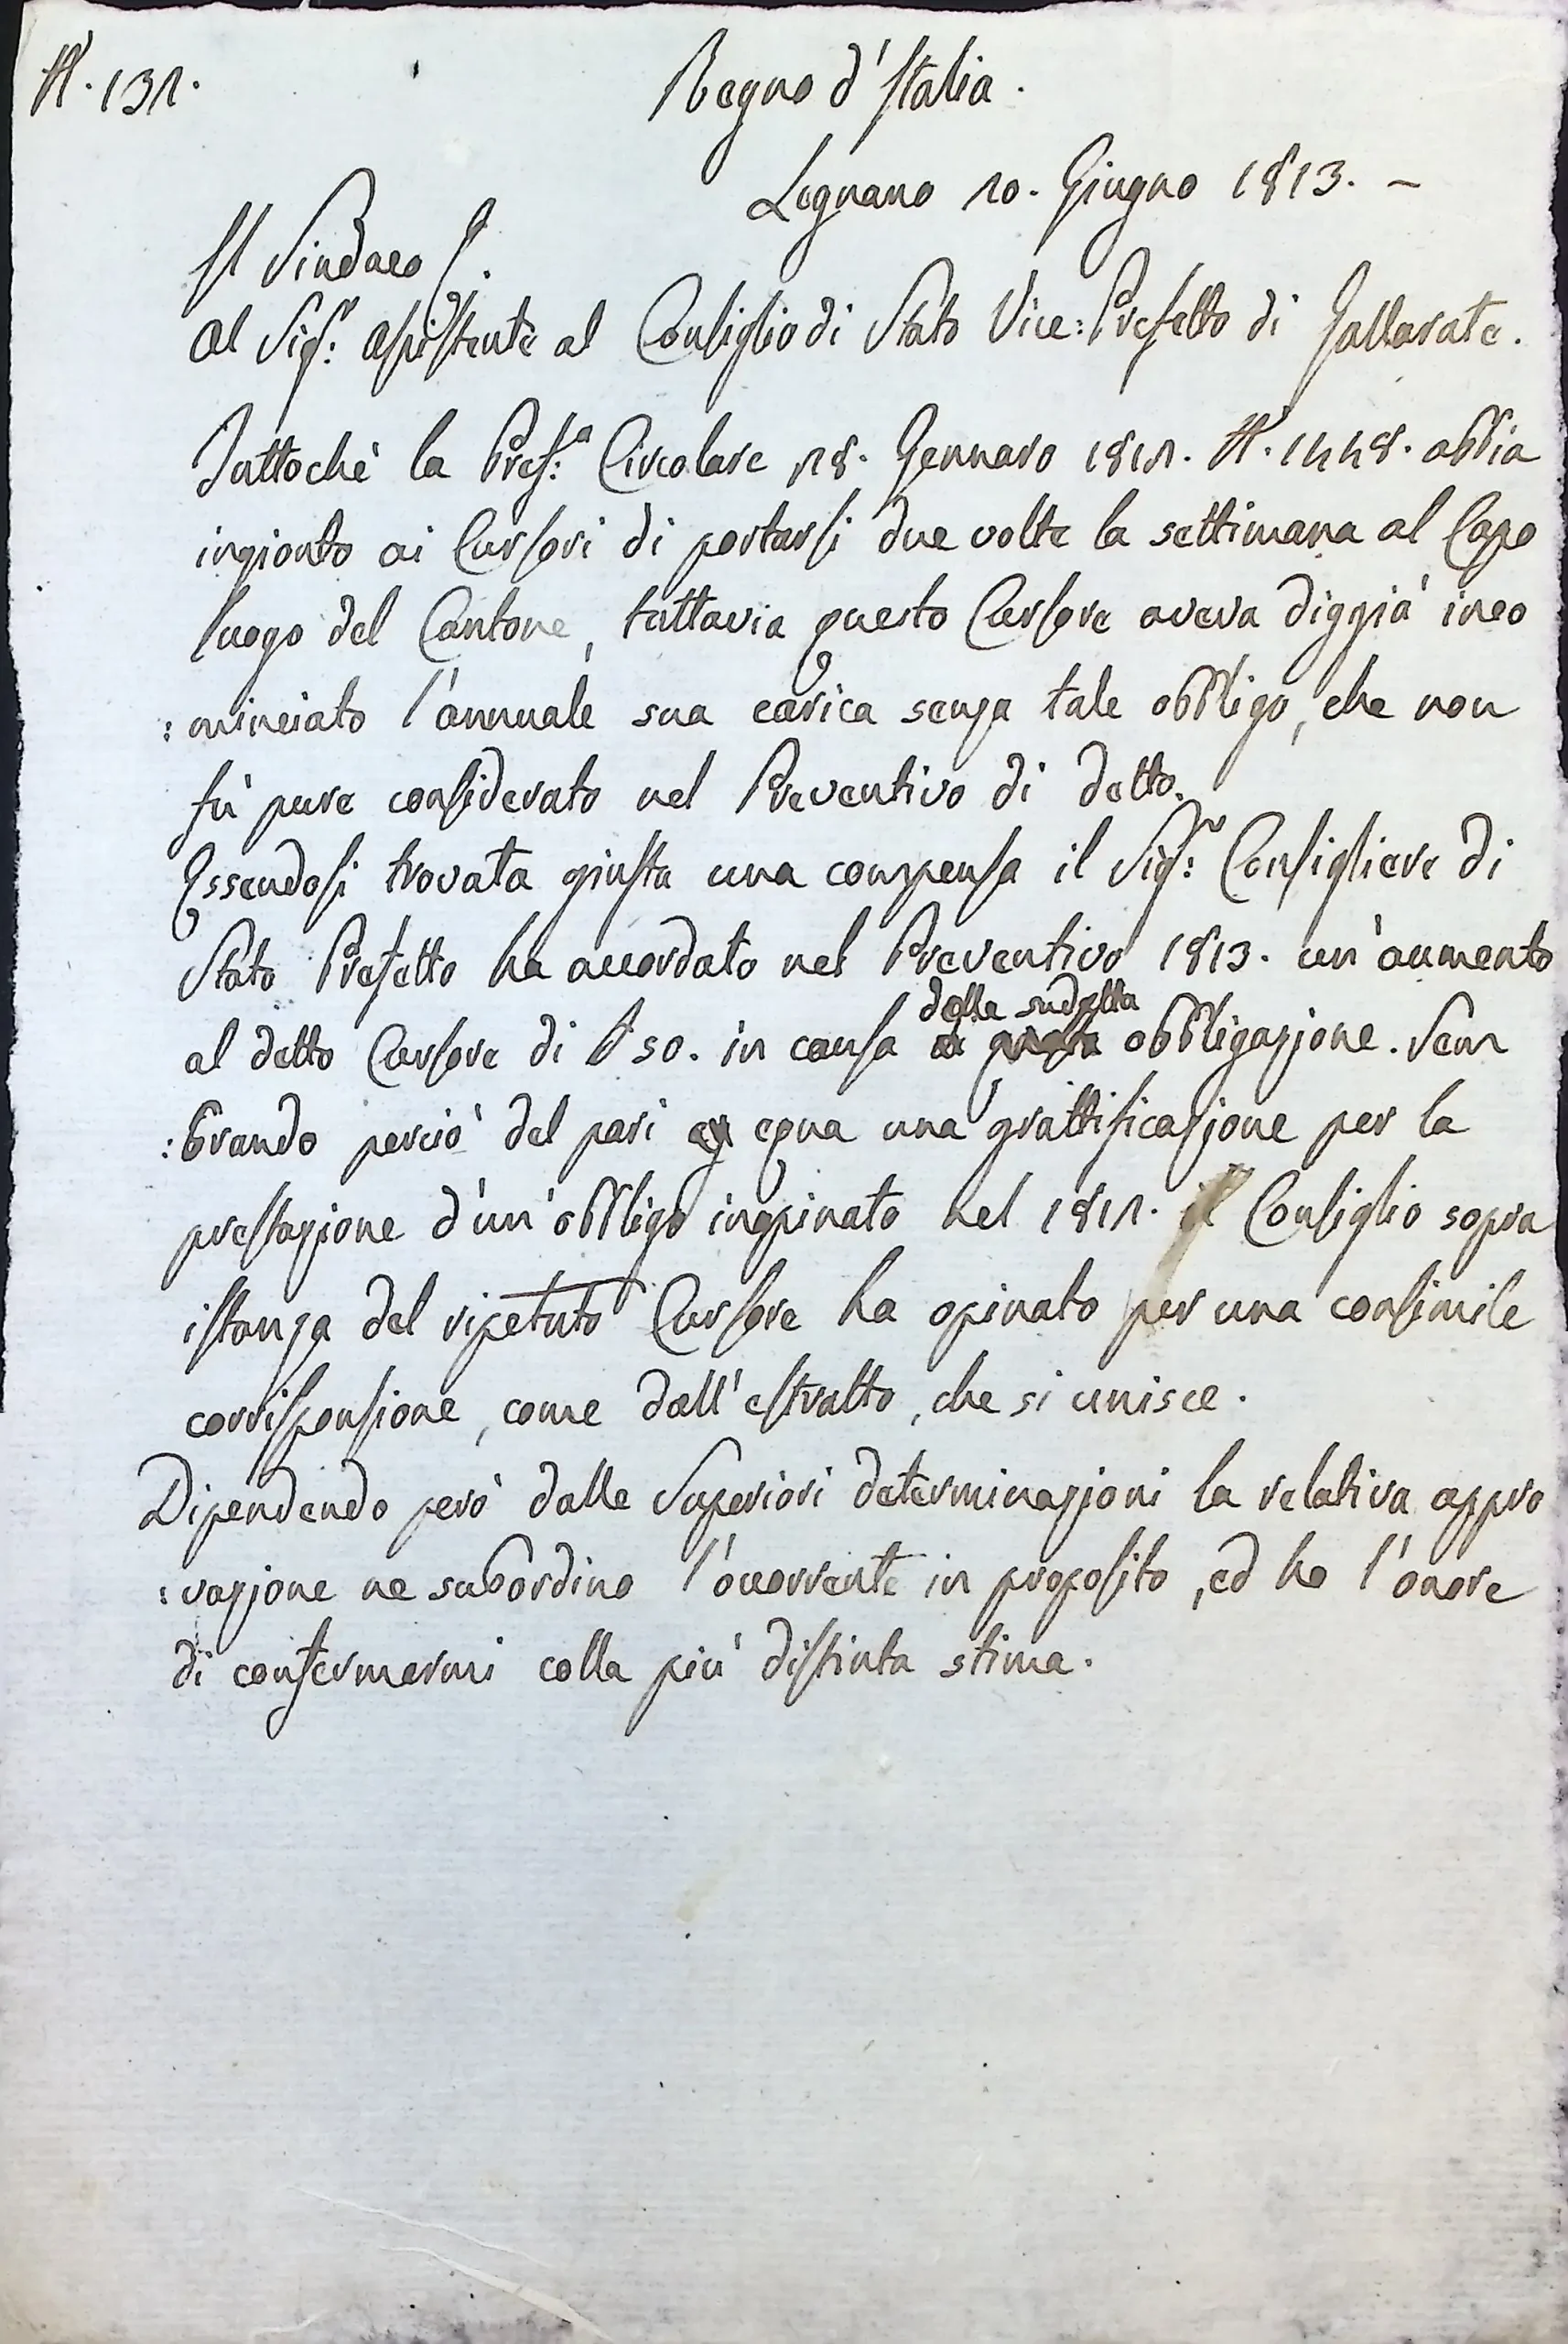 N. 132.
Regno d'Italia.
Legnano 20. Giugno 1813. –
Il Sindaco
Al Sig.r Assistente al Consiglio di Stato Vice: Prefetto di Gallarate.
Tuttochè la Pref.a Circolare 28. Gennaro 1812. N. 1448. abbia
ingionto ai Cursori di portarsi due volte la settimana al Capo
luogo del Cantone, tuttavia questo Cursore aveva diggià inco
:minciato l'annuale sua carica senza tale obbligo, che non
fù pure considerato nel Preventivo di detto.
Essendosi trovata giusta una compensa il Sig.r Consigliere di
Stato Prefetto ha accordato nel Preventivo 1813. un'aumento
al detto Cursore di £ 50. in causa della sudetta obbligazione. Sem
:brando perciò del pari equa una grattificazione per la
prestazione d'un'obbligo inopinato nel 1812. il Consiglio sopra
istanza del ripetuto Cursore ha opinato per una consimile
corrisponsione, come dall'estratto, che si unisce.
Dipendendo però dalle Superiori determinazioni la relativa appro
:vazione ne subordino l'occorrente in proposito, ed ho l'onore
di confermarmi colla più distinta stima.